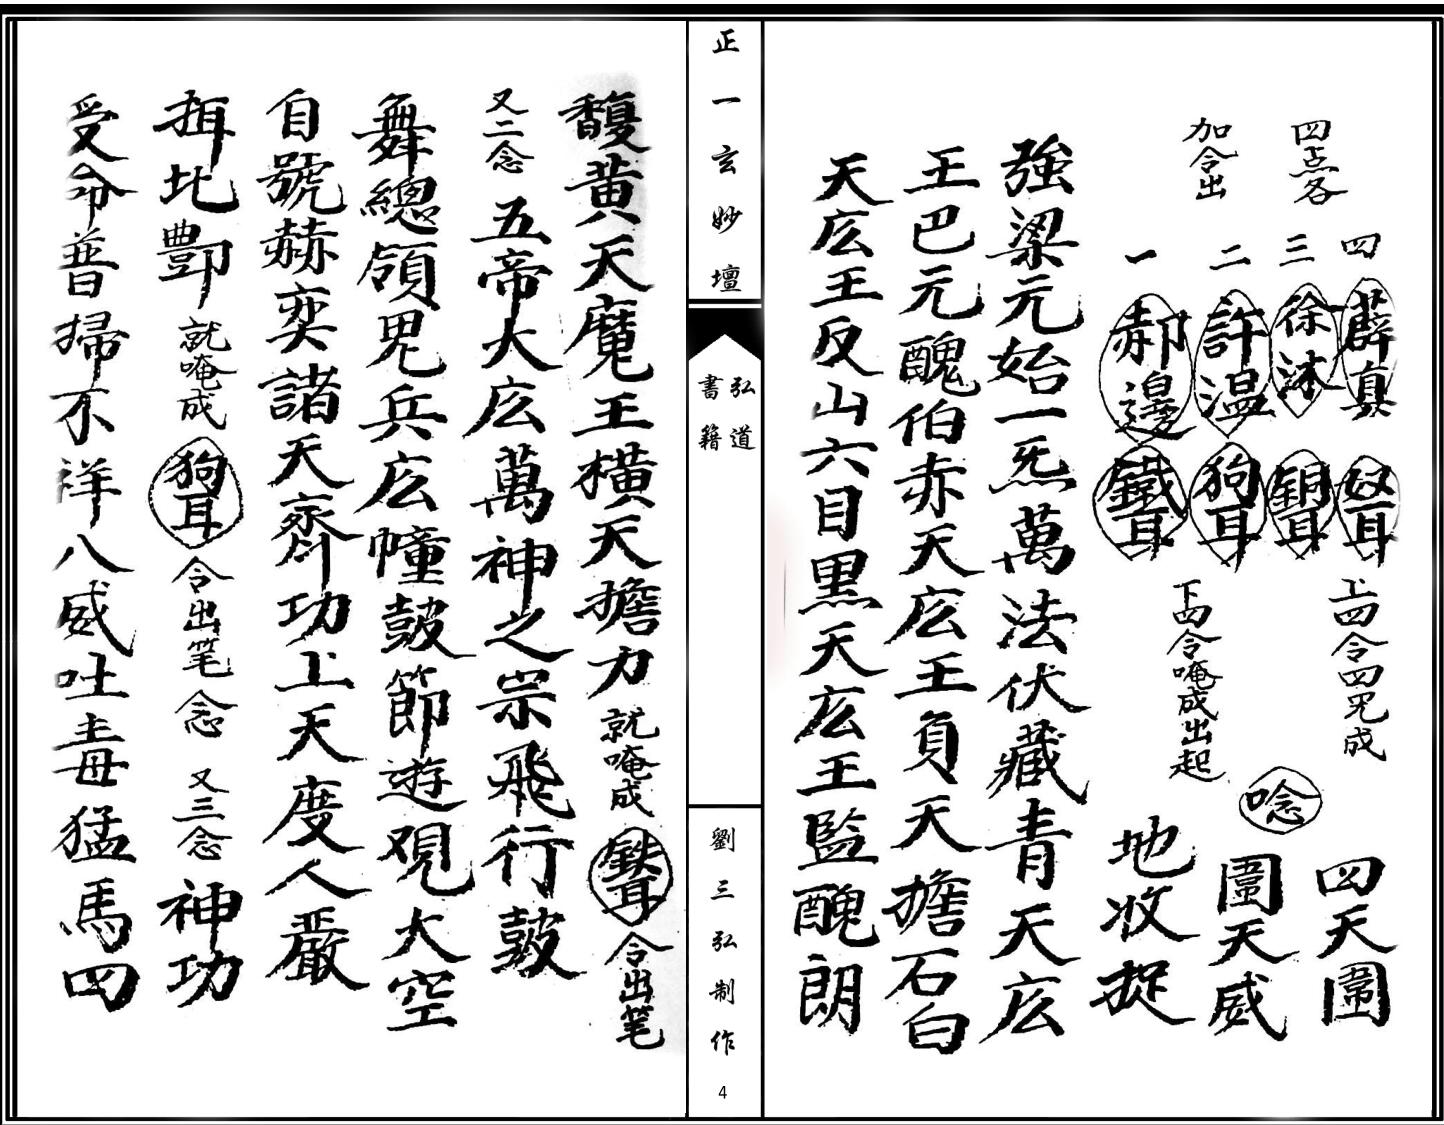 四点各
加令出
四 薜真 奴耳 上四令四咒成
三 徐沐 銅耳
二 許温 狗耳 下四令唵成出起
一 郝邊 鐵耳
唸
四天圍
圍天威
地收捉
強梁元始一炁萬法伏藏青天広
王巴元醜伯赤天広王負天擔石白
天広王反山六目黒天広王監醜朗
正一玄妙壇
弘道
書籍
劉三弘制作
4
馥黄天魔王横天擔力 就唵成 鉄耳 令出笔
又二念 五帝大広萬神之宗飛行鼓
舞總領鬼兵広幢鼓節遊观大空
自號赫奕諸天齊功上天度人嚴
摂北酆 就唵成 狗耳 令出笔念 又三念 神功
受命普掃不祥八威吐毒猛馬四